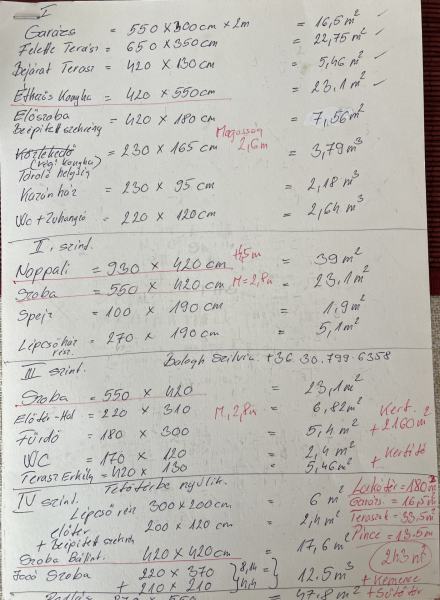 I
Garázs = 550 x 300 cm x 2m = 16,5 m² ✓
Felette Terasz = 650 x 350 cm = 22,75 m² ✓
Bejárat Terasz = 420 x 130 cm = 5,46 m² ✓
Étkezős Konyha = 420 x 550 cm = 23,1 m² ✓
Előszoba
Beépitett szekrény = 420 x 180 cm = 7,56 m²
Magasság
2,6 m
Közlekedő
(régi konyha) = 230 x 165 cm = 3,79 m³
Tároló helyiség
Kazánház = 230 x 95 cm = 2,18 m³
Wc + Zuhanyzó = 220 x 120 cm = 2,64 m³
II. szint.
Nappali = 930 x 420 cm = 39 m²
Szoba = 550 x 420 cm M=2,8m = 23,1 m²
Spejz = 100 x 190 cm = 1,9 m²
Lépcsőház
rész. = 270 x 190 cm = 5,1 m²
Balogh Szilvia +36 30.799-6358
III szint.
Szoba = 550 x 420 = 23,1 m²
Előtér-Hal = 220 x 310 M, 2,8m = 6,82 m²
Kert. 2
+ 2160 m
Fürdő = 180 x 300 = 5,4 m²
WC = 170 x 120 = 2,4 m²
+ Kertitó
Terasz Erkély = 420 x 130 = 5,46 m²
Tetőtérbe nyúlik.
IV szint.
Lépcső rész 300 x 200 cm = 6 m²
előtér 200 x 120 cm = 2,4 m²
+ Beépített szekrény
Szoba Bálint. 420 x 420 cm = 17,6 m²
Lakótér = 180 m²
Garázs. = 16,5 m²
Teraszok = 33,5 m²
Pince = 13,5 m
243 m²
Szoba 220 x 370 8,14
+ 210 x 210 4,4 = 12,5 m³
+ Kemence
550 = 47,8 m²